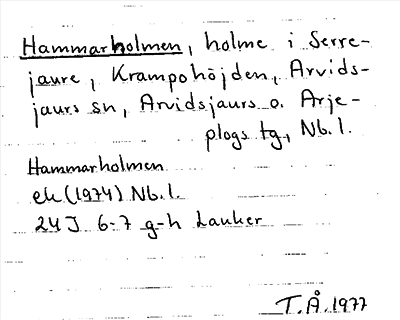 Hammarholmen, holme i Serre-
jaure, Krampohöjden, Arvids-
jaurs sn, Arvidsjaurs o. Arje-
plogs tg, Nb. l.
Hammarholmen
ek (1974) Nb. l.
24J 6-7 g-h Lauker
T.Å. 1977